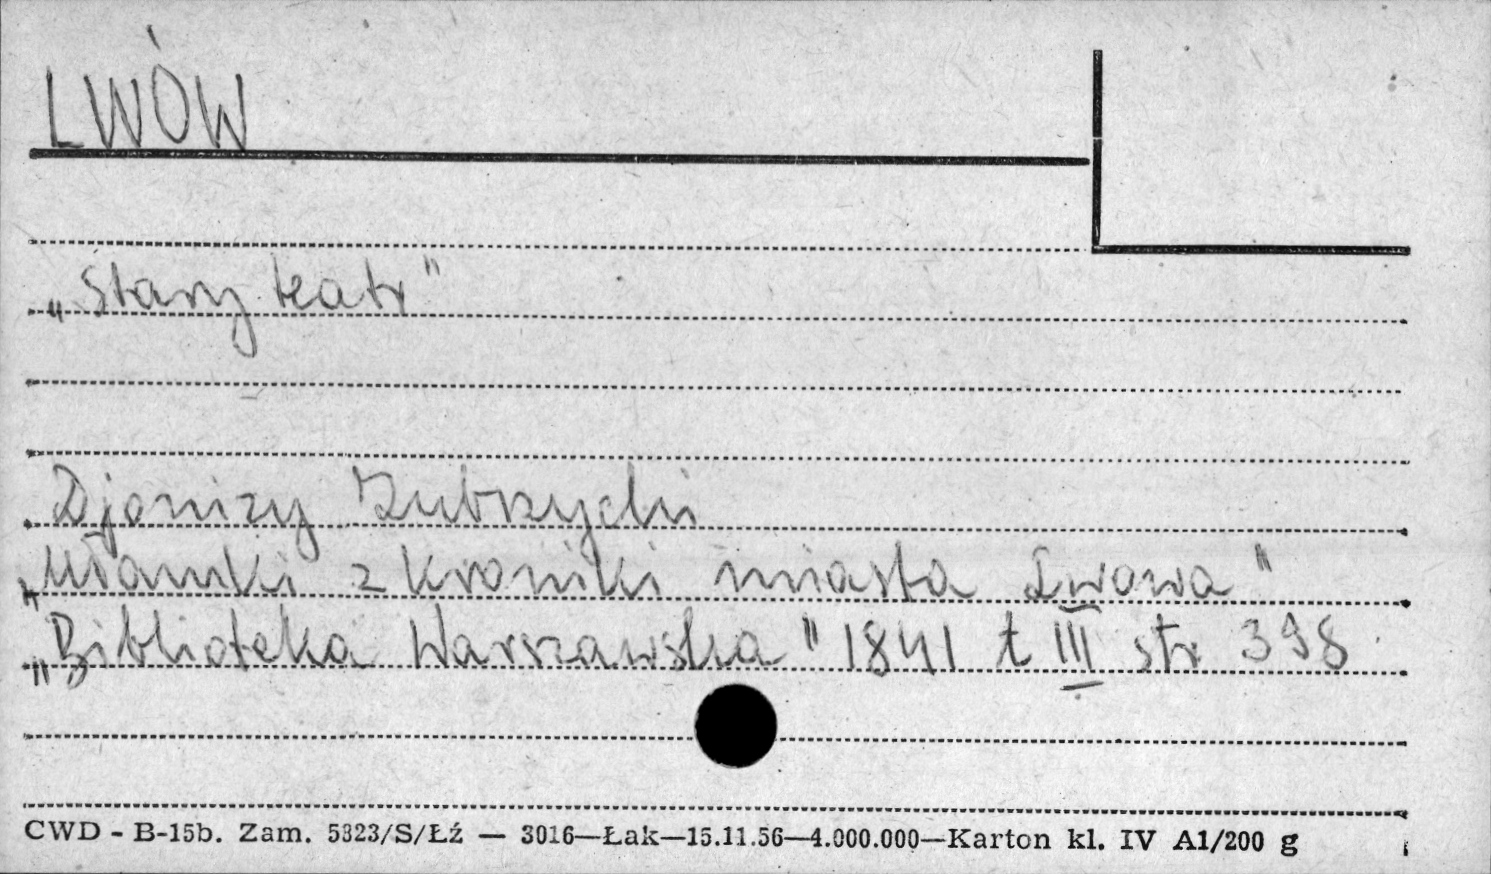 LWÓW
„Stary teatr"
Djonizy Zubrzycki
„Ułamki z kroniki miasta Lwowa"
„Biblioteka Warszawska" 1841 t III str 398
CWD - B-15b. Zam. 5323/S/Łź — 3016—Łak—15.11.56—4.000.000—Karton kl. IV A1/200 g